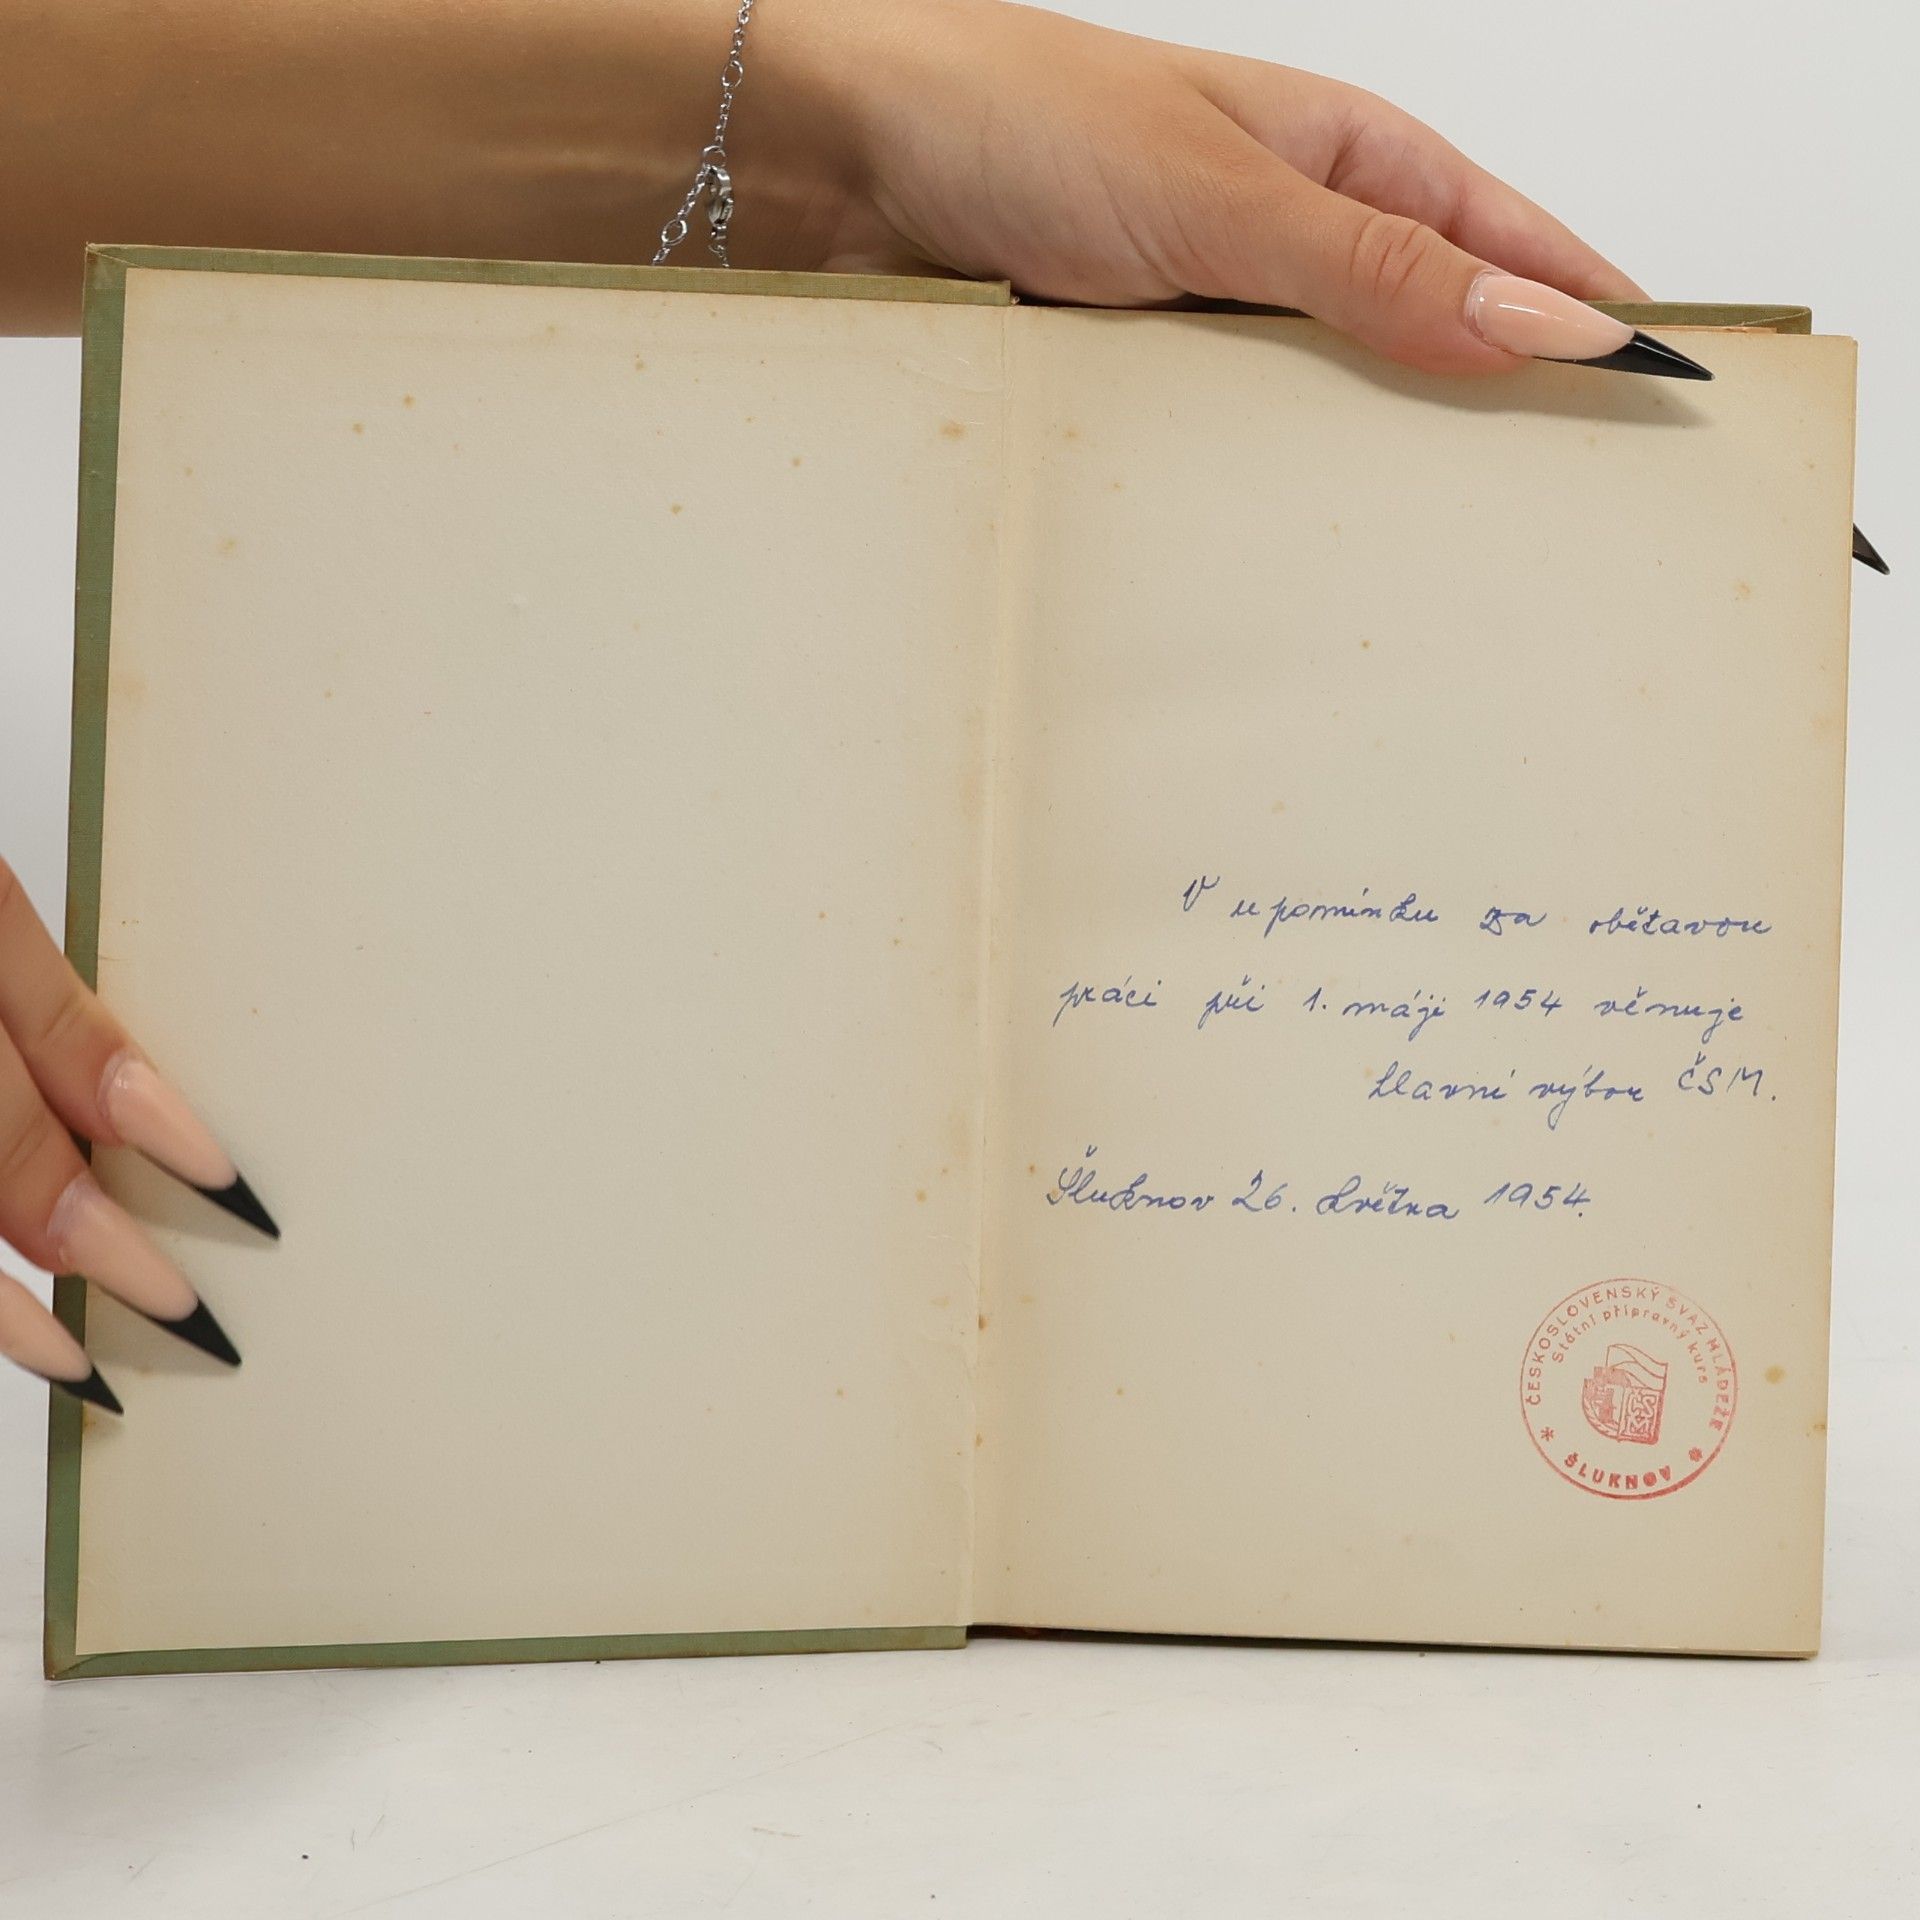 V upomínku za obětavou
práci při 1. máji 1954 věnuje
hlavní výbor ČSM.
Šluknov 26. května 1954.
ČESKOSLOVENSKÝ SVAZ MLÁDEŽE
Státní přípravný kurs
ČSM
* ŠLUKNOV *